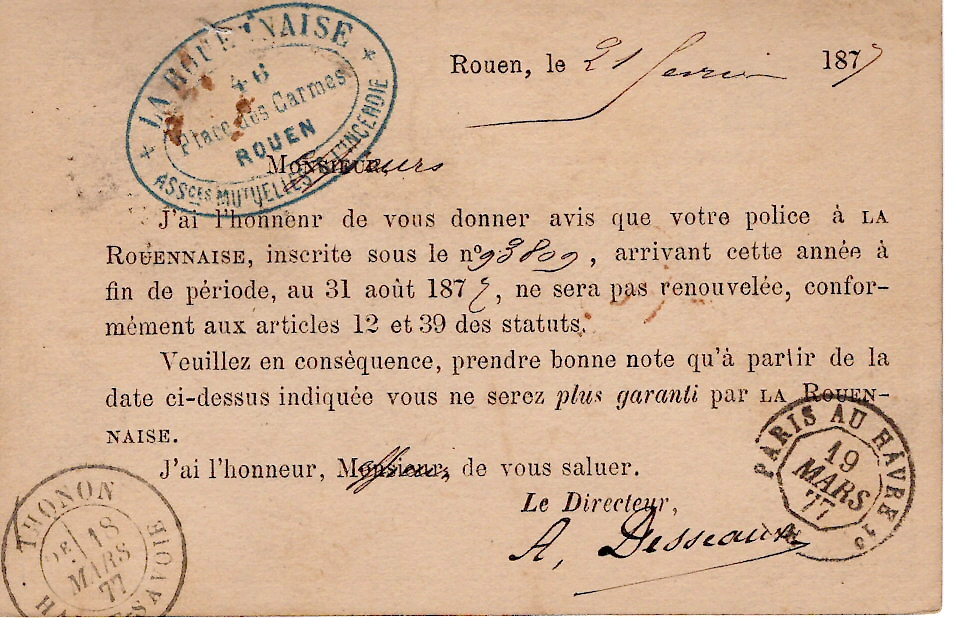 LA ROUENNAISE
46
Place des Carmes
ROUEN
ASSCES MUTUELLES L'INCENDIE
Rouen, le 21 fevrier 1877
MONSIEURS
J'ai l'honnenr de vous donner avis que votre police à LA
ROUENNAISE, inscrite sous le n° 93809, arrivant cette année à
fin de période, au 31 août 1877, ne sera pas renouvelée, confor-
mément aux articles 12 et 39 des statuts.
Veuillez en conséquence, prendre bonne note qu'à partir de la
date ci-dessus indiquée vous ne serez plus garanti par LA ROUEN-
NAISE.
J'ai l'honneur, Monsieur, de vous saluer.
Le Directeur,
A, Desseaux
THONON
2E 18
MARS
77
HAUTE-SAVOIE
PARIS AU HAVRE
19
MARS
77